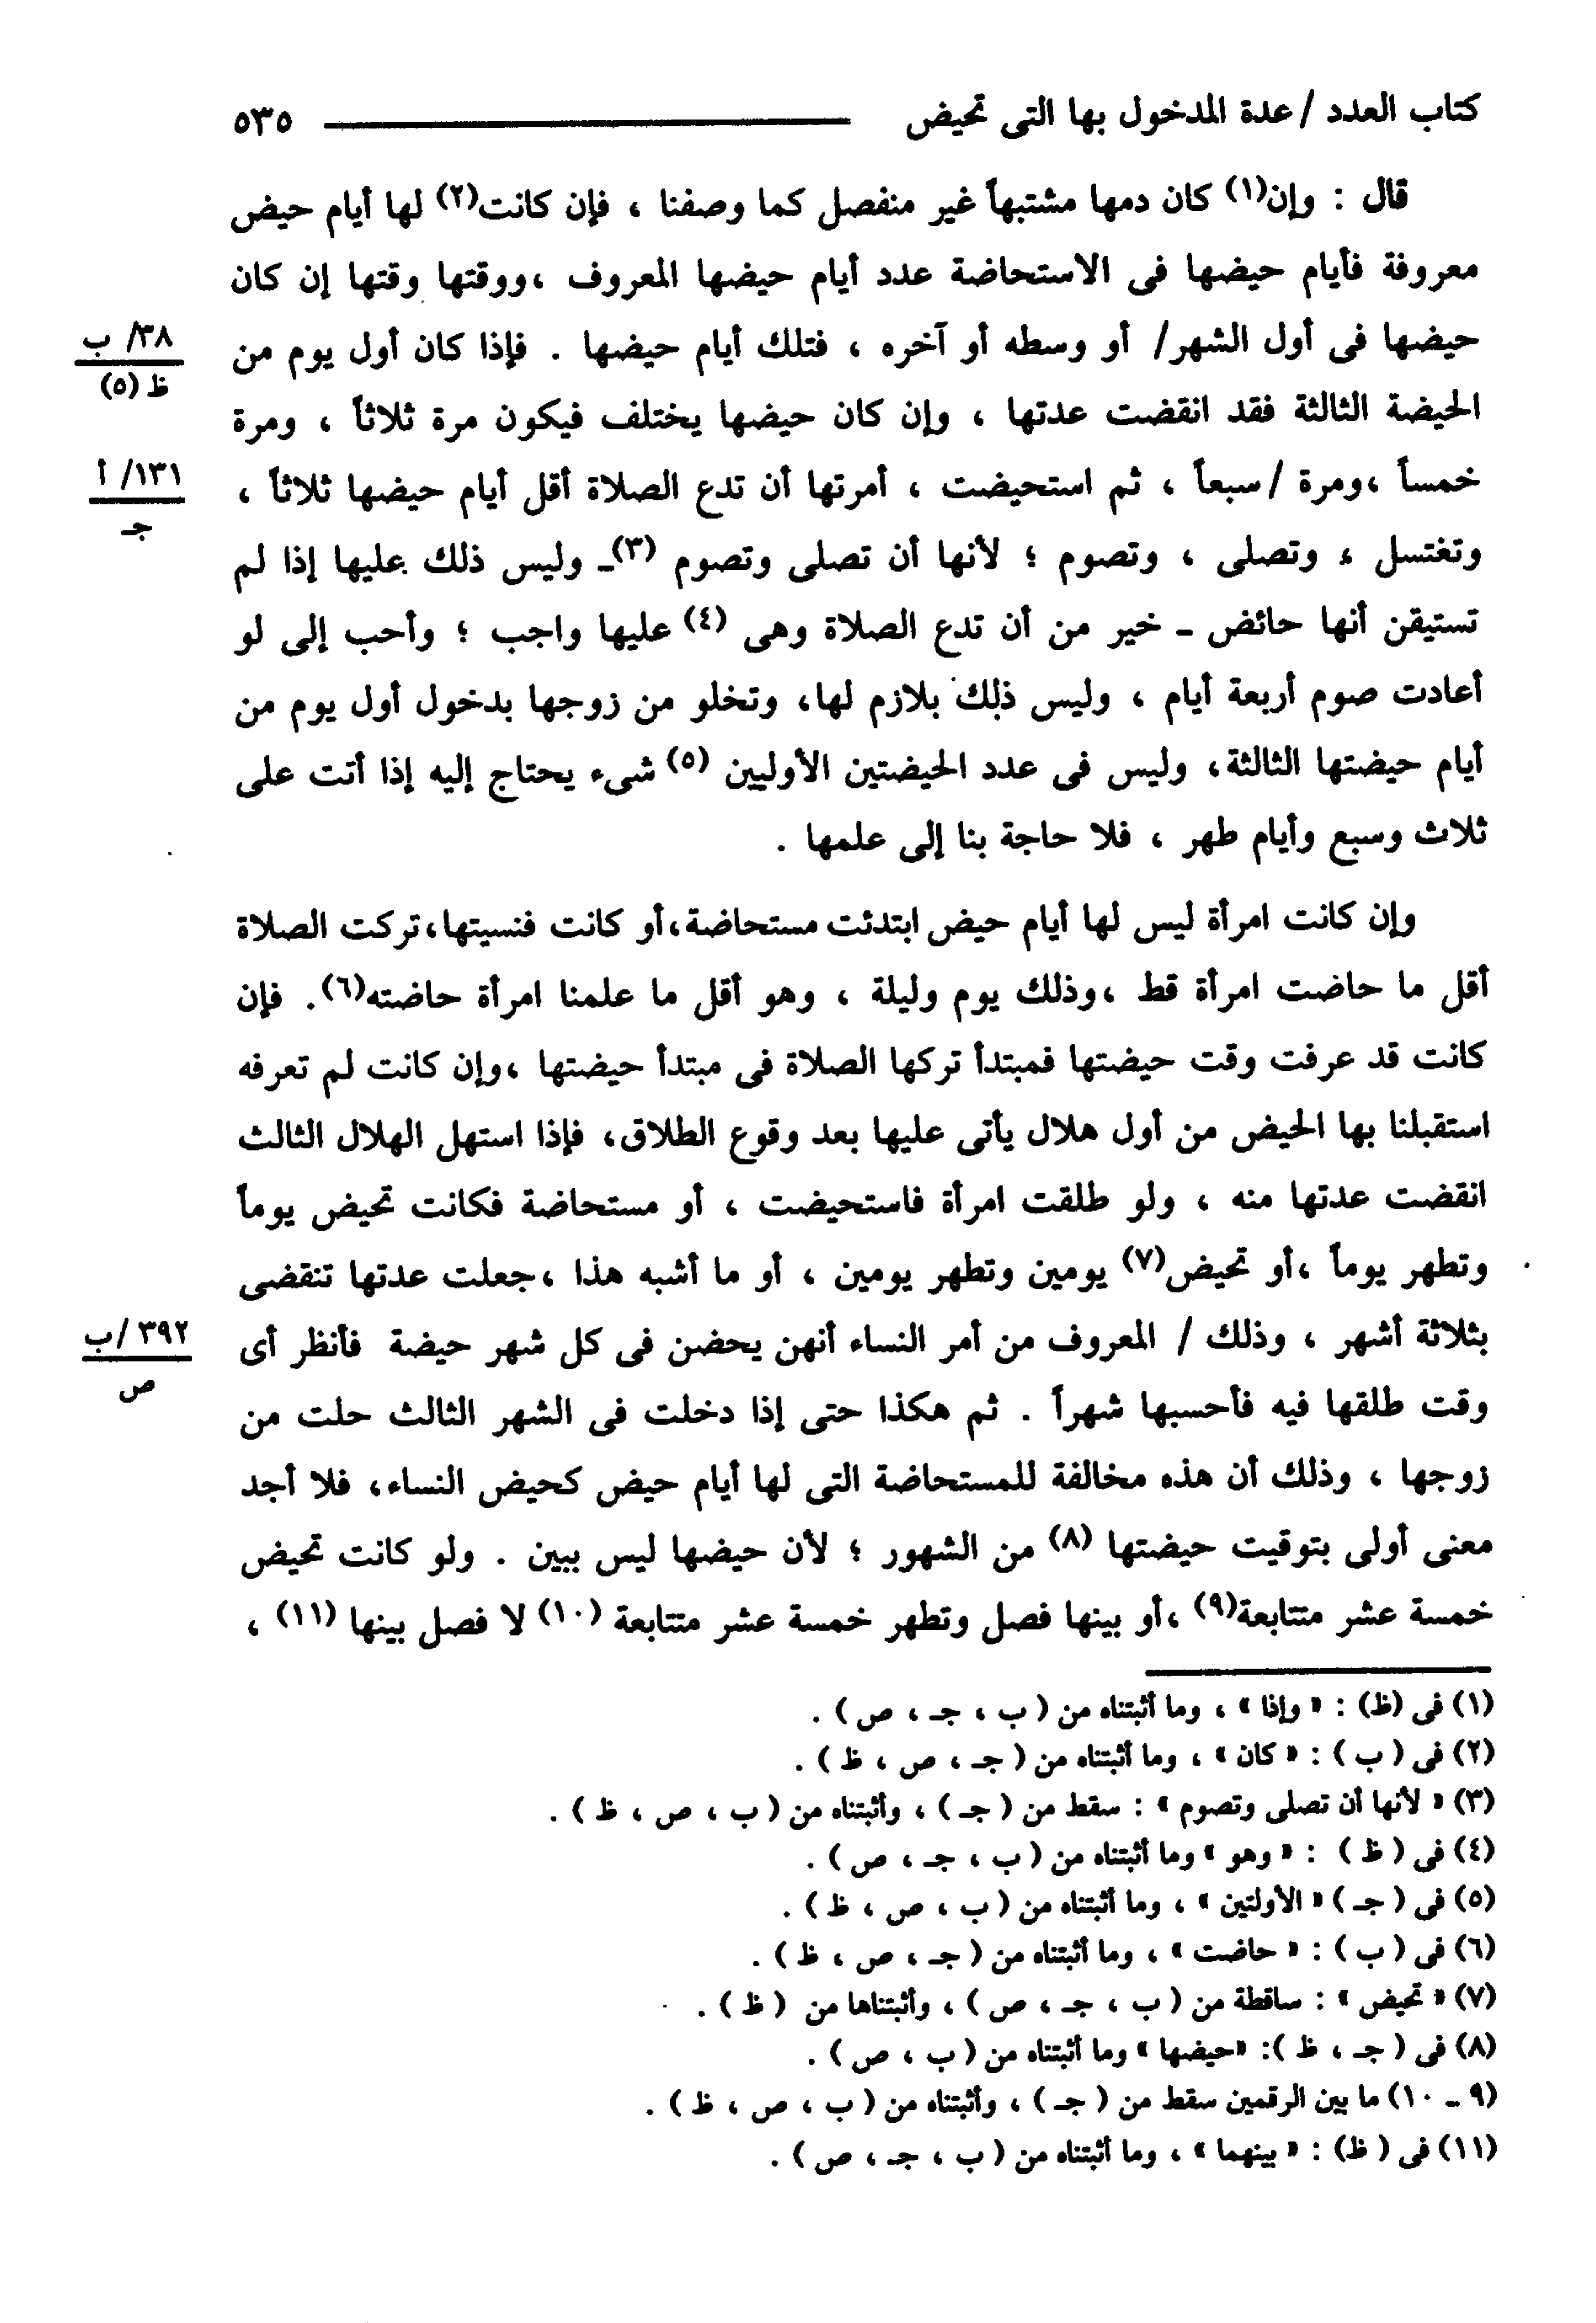 كتاب العدد / عدة المدخول بها التى تحيض ٥٣٥
قال : وإن(١) كان دمها مشتبهاً غير منفصل كما وصفنا ، فإن كانت(٢) لها أيام حيض
معروفة فأيام حيضها فى الاستحاضة عدد أيام حيضها المعروف ،ووقتها وقتها إن كان
حيضها فى أول الشهر/ أو وسطه أو آخره ، فتلك أيام حيضها . فإذا كان أول يوم من
٣٨/ ب
ظ (٥)
الحيضة الثالثة فقد انقضت عدتها ، وإن كان حيضها يختلف فيكون مرة ثلاثاً ، ومرة
خمساً ،ومرة /سبعاً ، ثم استحيضت ، أمرتها أن تدع الصلاة أقل أيام حيضها ثلاثاً ،
١٣١/ أ
جـ
وتغتسل ، وتصلى ، وتصوم ؛ لأنها أن تصلى وتصوم (٣)ـ وليس ذلك عليها إذا لم
تستيقن أنها حائض ـ خير من أن تدع الصلاة وهى (٤) عليها واجب ؛ وأحب إلى لو
أعادت صوم أربعة أيام ، وليس ذلك بلازم لها، وتخلو من زوجها بدخول أول يوم من
أيام حيضتها الثالثة، وليس فى عدد الحيضتين الأوليين (٥) شىء يحتاج إليه إذا أتت على
ثلاث وسبع وأيام طهر ، فلا حاجة بنا إلى علمها .
وإن كانت امرأة ليس لها أيام حيض ابتدئت مستحاضة،أو كانت فنسيتها،تركت الصلاة
أقل ما حاضت امرأة قط ،وذلك يوم وليلة ، وهو أقل ما علمنا امرأة حاضته(٦). فإن
كانت قد عرفت وقت حيضتها فمبتدأ تركها الصلاة فى مبتدأ حيضتها ،وإن كانت لم تعرفه
استقبلنا بها الحيض من أول هلال يأتى عليها بعد وقوع الطلاق، فإذا استهل الهلال الثالث
انقضت عدتها منه ، ولو طلقت امرأة فاستحيضت ، أو مستحاضة فكانت تحيض يوماً
وتطهر يوماً ،أو تحيض(٧) يومين وتطهر يومين ، أو ما أشبه هذا ،جعلت عدتها تنقضى
بثلاثة أشهر ، وذلك / المعروف من أمر النساء أنهن يحضن فى كل شهر حيضة فأنظر أى
٣٩٢ /ب
ص
وقت طلقها فيه فأحسبها شهراً . ثم هكذا حتى إذا دخلت فى الشهر الثالث حلت من
زوجها ، وذلك أن هذه مخالفة للمستحاضة التى لها أيام حيض كحيض النساء، فلا أجد
معنى أولى بتوقيت حيضتها (٨) من الشهور ؛ لأن حيضها ليس ببين . ولو كانت تحيض
خمسة عشر متتابعة(٩) ،أو بينها فصل وتطهر خمسة عشر متتابعة (١٠) لا فصل بينها (١١) ،
(١) فى (ظ) : « وإذا » ، وما أثبتناه من ( ب ، جـ ، ص ) .
(٢) فى ( ب ) : « كان » ، وما أثبتناه من ( جـ ، ص ، ظ ) .
(٣) « لأنها أن تصلى وتصوم » : سقط من ( جـ ) ، وأثبتناه من ( ب ، ص ، ظ ) .
(٤) فى ( ظ ) : « وهو » وما أثبتناه من ( ب ، جـ ، ص ) .
(٥) فى ( جـ ) « الأولتين » ، وما أثبتناه من ( ب ، ص ، ظ ) .
(٦) فى ( ب ) : « حاضت » ، وما أثبتناه من ( جـ ، ص ، ظ ) .
(٧) « تحيض » : ساقطة من ( ب ، جـ ، ص ) ، وأثبتناها من ( ظ ) .
(٨) فى ( جـ ، ظ ): «حيضها » وما أثبتناه من ( ب ، ص ) .
(٩ ـ ١٠) ما بين الرقمين سقط من ( جـ ) ، وأثبتناه من ( ب ، ص ، ظ ) .
(١١) فى ( ظ) : « بينهما » ، وما أثبتناه من ( ب ، جـ ، ص ) .